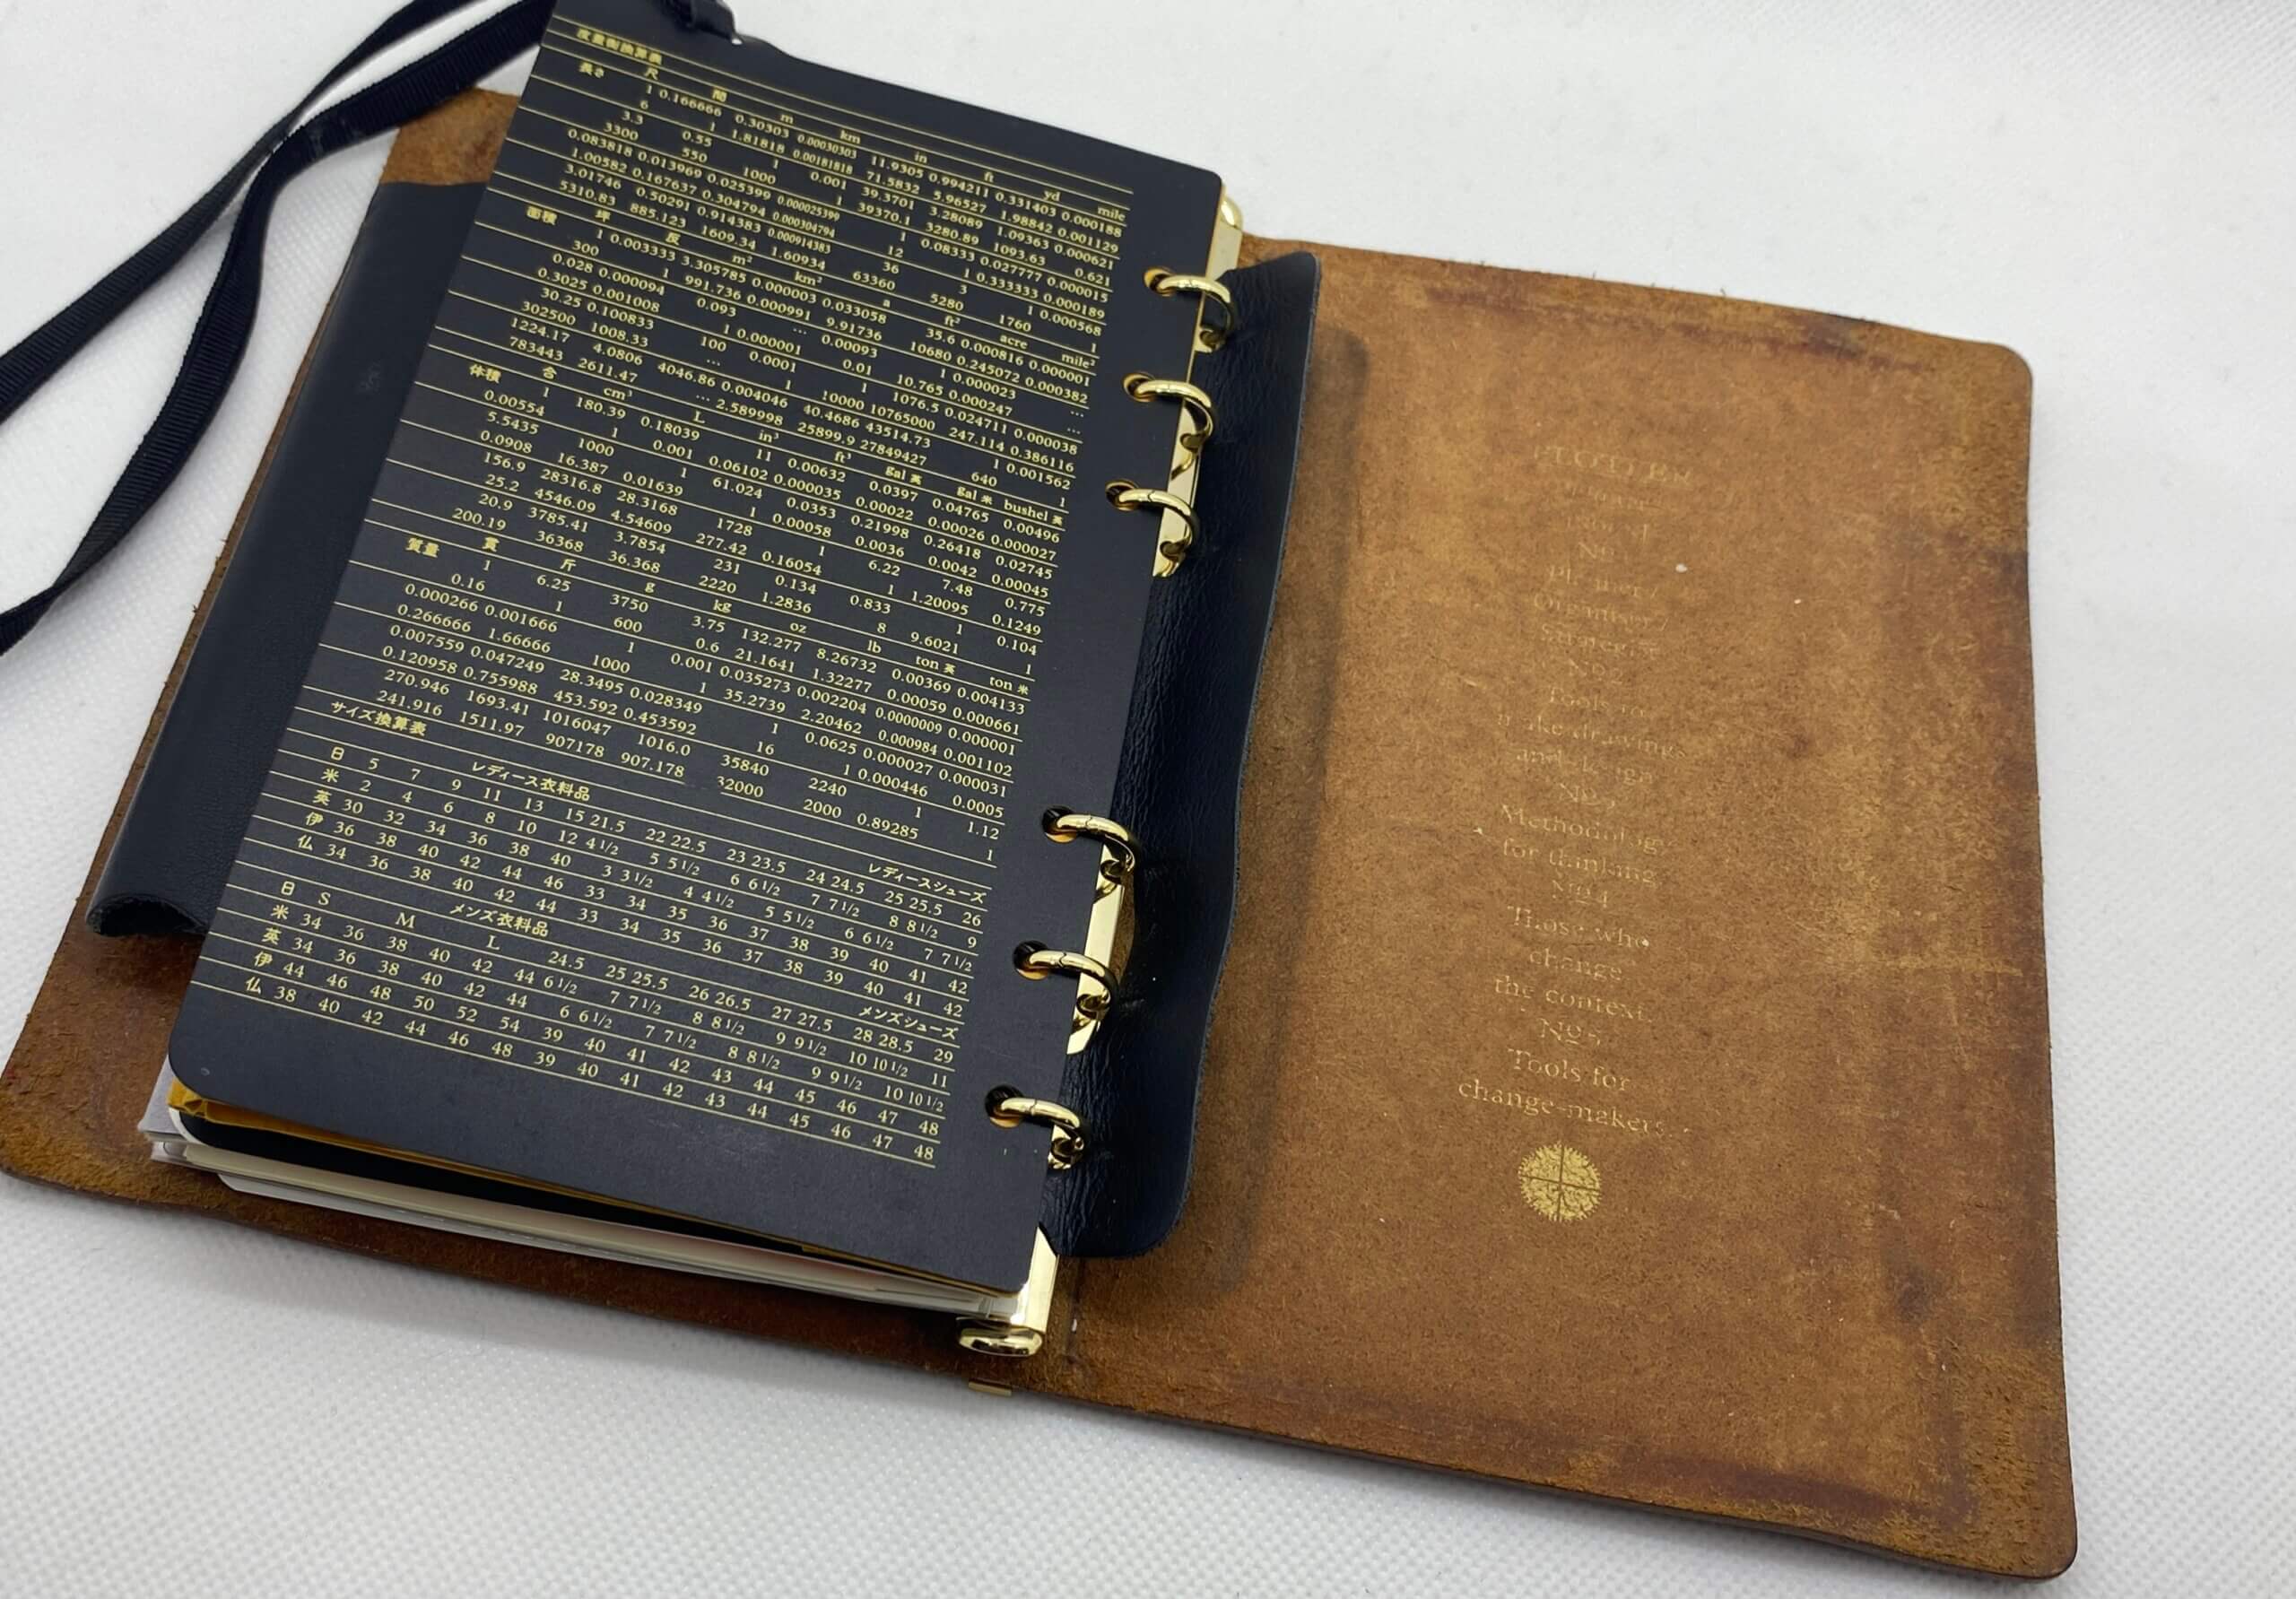 度量衡換算表
長さ 尺 間 m km in ft yd mile
1 0.166666 0.30303 0.00030303 11.9305 0.994211 0.331403 0.000188
6 1 1.81818 0.00181818 71.5832 5.96527 1.98842 0.001129
3.3 0.55 1 0.001 39.3701 3.28089 1.09363 0.000621
3300 550 1000 1 39370.1 3280.89 1093.63 0.621
0.083818 0.013969 0.025399 0.000025399 1 0.08333 0.027777 0.000015
1.00582 0.167637 0.304794 0.000304794 12 1 0.333333 0.000189
3.01746 0.50291 0.914383 0.000914383 36 3 1 0.000568
5310.83 885.123 1609.34 1.60934 63360 5280 1760 1
面積 坪 反 m² km² a ft² acre mile²
1 0.003333 3.305785 0.000003 0.033058 35.6 0.000816 0.000001
300 1 991.736 0.000991 9.91736 10680 0.245072 0.000382
0.028 0.000094 0.093 … 0.00093 1 0.000023 …
0.3025 0.001008 1 0.000001 0.01 10.765 0.000247 …
30.25 0.100833 100 0.0001 1 1076.5 0.024711 0.000038
302500 1008.33 … 1 10000 1076500 247.114 0.386116
1224.17 4.0806 4046.86 0.004046 40.4686 43514.73 1 0.001562
783443 2611.47 … 2.589998 25899.9 27849427 640 1
体積 合 cm³ L in³ ft³ gal 英 gal 米 bushel 英
1 180.39 0.18039 11 0.00632 0.0397 0.04765 0.00496
0.00554 1 0.001 0.06102 0.000035 0.00022 0.00026 0.000027
5.5435 1000 1 61.024 0.0353 0.21998 0.26418 0.02745
0.0908 16.387 0.01639 1 0.00058 0.0036 0.0042 0.00045
156.9 28316.8 28.3168 1728 1 6.22 7.48 0.775
25.2 4546.09 4.54609 277.42 0.16054 1 1.20095 0.1249
20.9 3785.41 3.7854 231 0.134 0.833 1 0.104
200.19 36368 36.368 2220 1.2836 8 9.6021 1
質量 貫 斤 g kg oz lb ton 英 ton 米
1 6.25 3750 3.75 132.277 8.26732 0.00369 0.004133
0.16 1 600 0.6 21.1641 1.32277 0.00059 0.000661
0.000266 0.001666 1 0.001 0.035273 0.002204 0.0000009 0.000001
0.266666 1.66666 1000 1 35.2739 2.20462 0.000984 0.001102
0.007559 0.047249 28.3495 0.028349 1 0.0625 0.000027 0.000031
0.120958 0.755988 453.592 0.453592 16 1 0.000446 0.0005
270.946 1693.41 1016047 1016.0 35840 2240 1 1.12
241.916 1511.97 907178 907.178 32000 2000 0.89285 1
サイズ換算表
レディース衣料品 レディースシューズ
日 5 7 9 11 13 15 21.5 22 22.5 23 23.5 24 24.5 25 25.5 26
米 2 4 6 8 10 12 4 1/2 5 5 1/2 6 6 1/2 7 7 1/2 8 8 1/2 9
英 30 32 34 36 38 40 3 3 1/2 4 4 1/2 5 5 1/2 6 6 1/2 7 7 1/2
伊 36 38 40 42 44 46 33 34 35 36 37 38 39 40 41 42
仏 34 36 38 40 42 44 33 34 35 36 37 38 39 40 41 42
メンズ衣料品 メンズシューズ
日 S M L 24.5 25 25.5 26 26.5 27 27.5 28 28.5 29
米 34 36 38 40 42 44 6 1/2 7 7 1/2 8 8 1/2 9 9 1/2 10 10 1/2 11
英 34 36 38 40 42 44 6 6 1/2 7 7 1/2 8 8 1/2 9 9 1/2 10 10 1/2
伊 44 46 48 50 52 54 39 40 41 42 43 44 45 46 47 48
仏 38 40 42 44 46 48 39 40 41 42 43 44 45 46 47 48
Planner/
Organiser/
Strategist
Nº 2
Tools to
make drawings
and design
Nº 3
Methodology
for thinking
Nº 4
Those who
change
the context.
Nº 5
Tools for
change-makers.